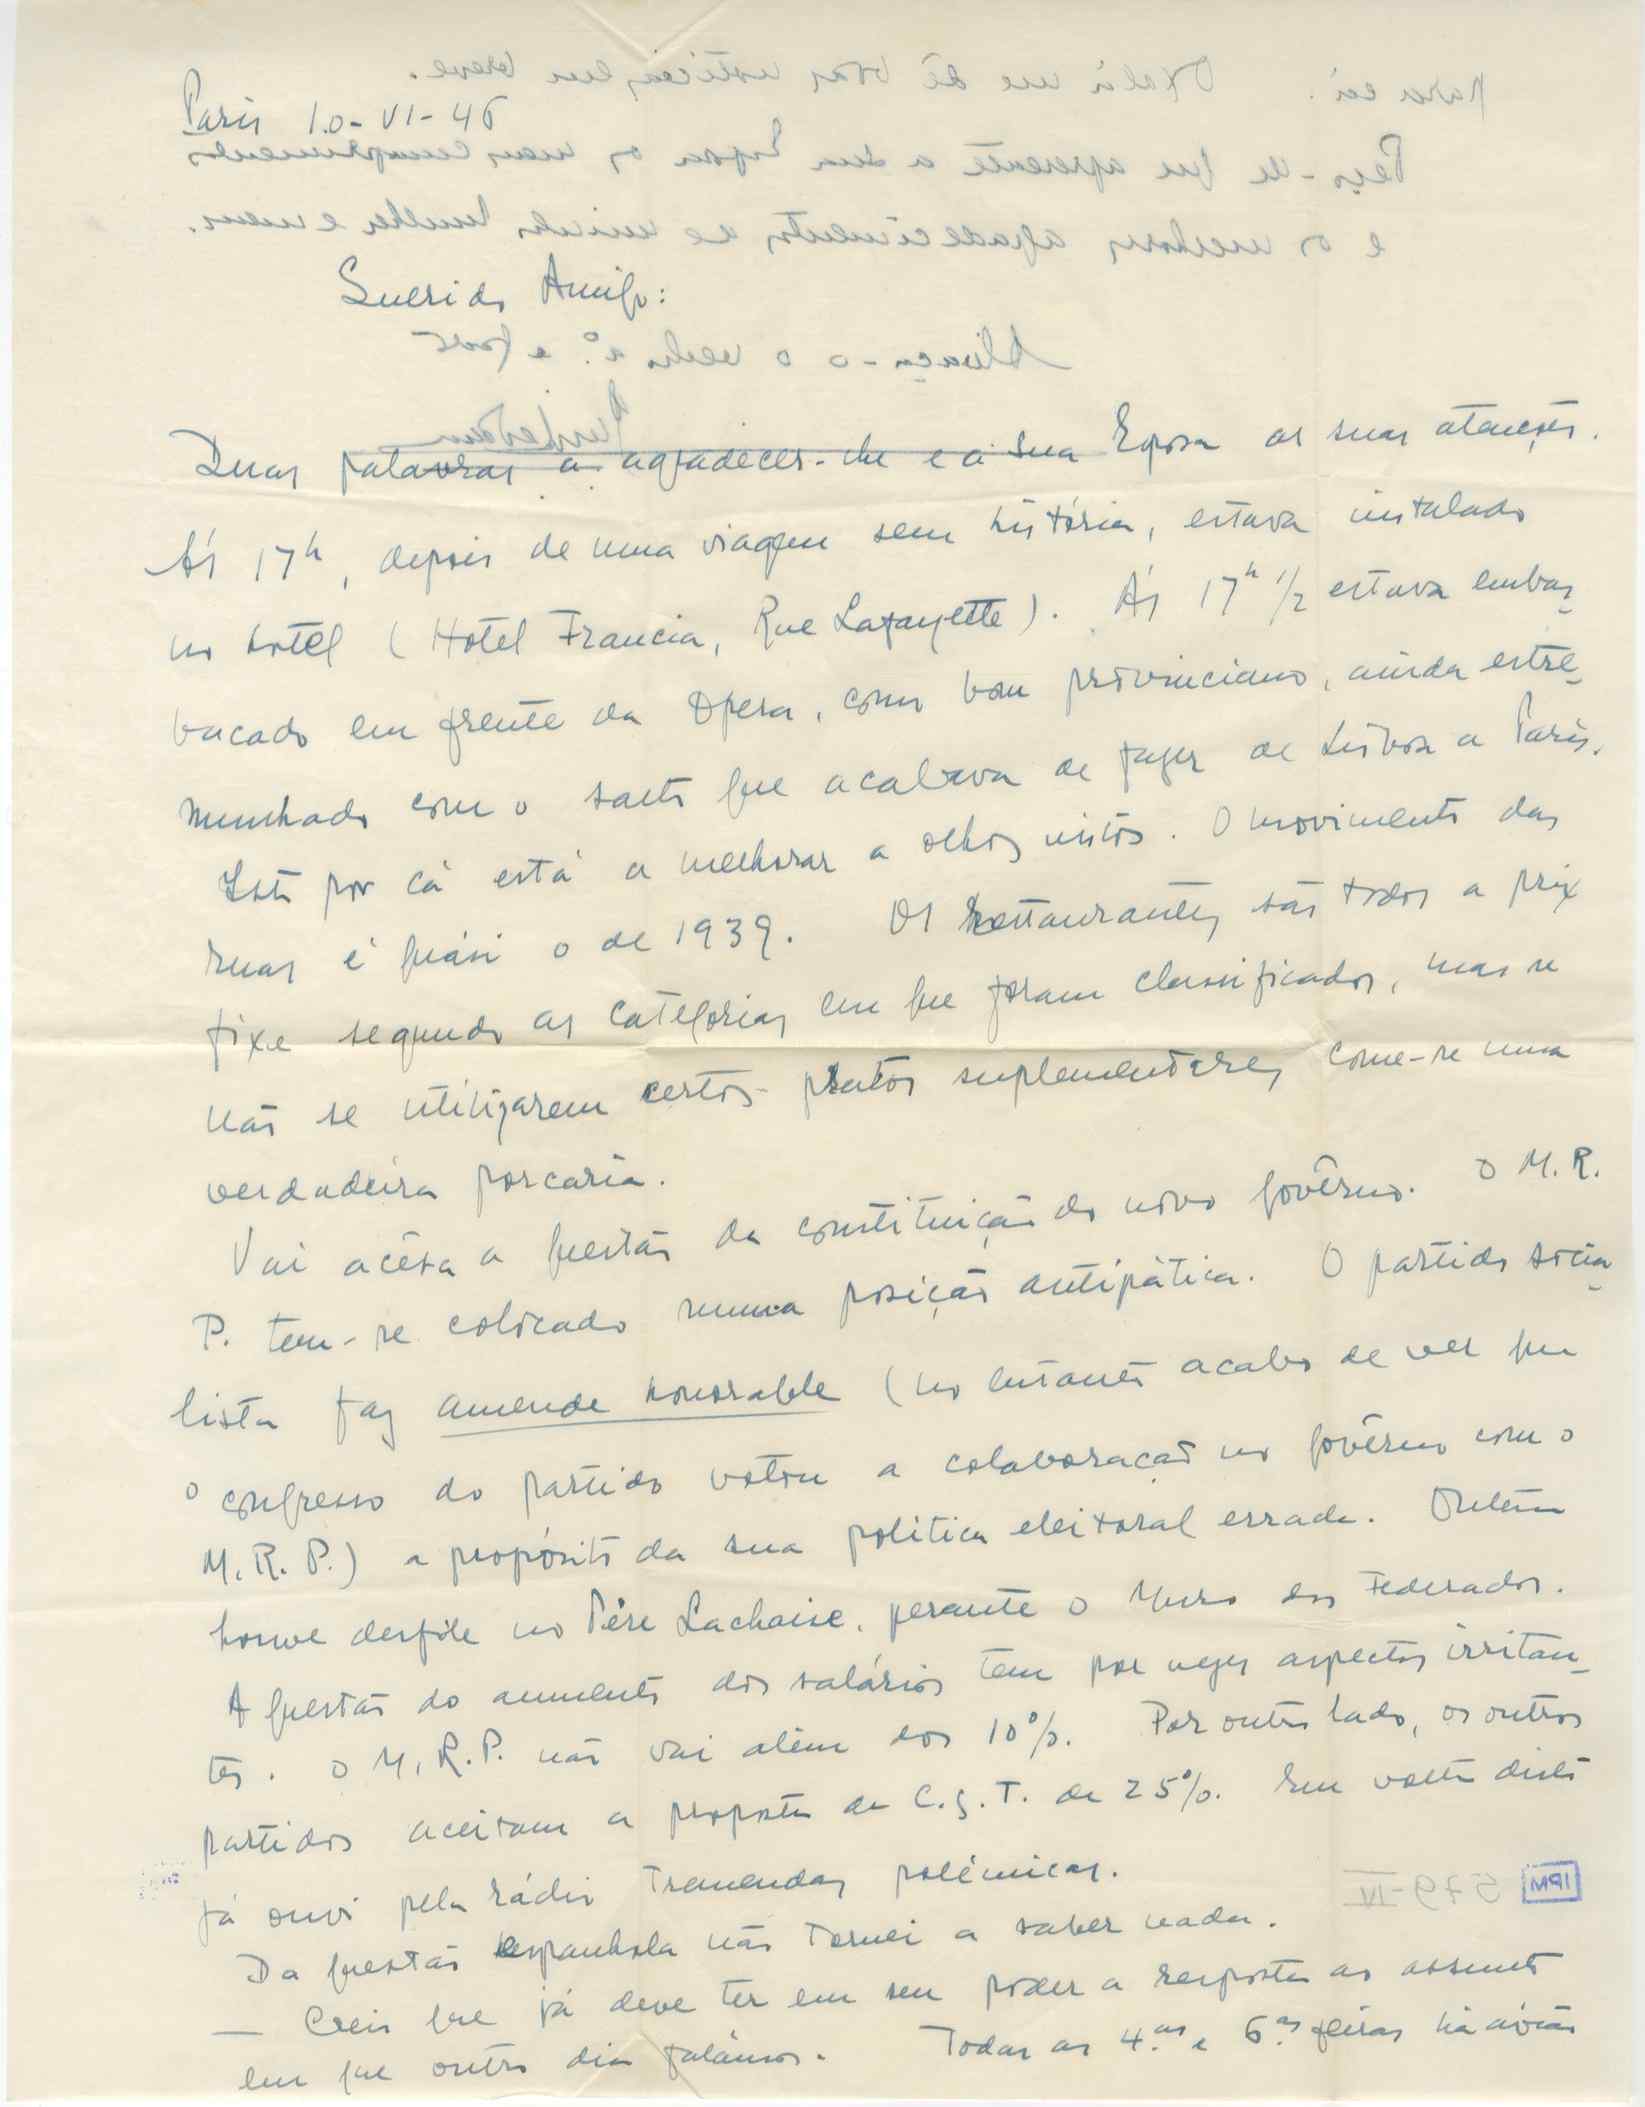 Paris 10-VI-46
Querido Amigo:
Duas palavras a agradecer-lhe e a sua Esposa as suas atenções.
Ás 17h, depois de uma viagem sem história, estava instalado
no hotel (Hotel Francia, Rue Lafayette). Ás 17h 1/2 estava embas-
bacado em frente da Opera, como bom provinciano, ainda estre-
munhado com o salto que acabava de fazer de Lisboa a Paris.
Isto por cá está a melhorar a olhos vistos. O movimento das
ruas é quási o de 1939. Os restaurantes são todos a prix
fixe segundo as categorias em que foram classificados, mas se
não se utilizarem certos pratos suplementares come-se uma
verdadeira porcaria.
Vai acêsa a questão da constituição do novo govêrno. O M.R.
P. tem-se colocado numa posição antipática. O partido socia-
lista faz amende honorable (no entanto acabo de ver que
o congresso do partido votou a colaboração no govêrno com o
M.R.P.) a propósito da sua política eleitoral errada. Ontem
houve desfile no Père Lachaise, perante o Muro dos Federados.
A questão do aumento dos salários tem por vezes aspectos irritan-
tes. O M.R.P. não vai além dos 10%. Por outro lado, os outros
partidos aceitam a proposta da C.G.T. de 25%. Em volta disto
já ouvi pela rádio tremendas polémicas.
Da questão espanhola não tornei a saber nada.
— Creio que já deve ter em seu poder a resposta ao assunto
em que outro dia falámos. Todas as 4.as e 6.as feiras há avião
para cá. Oxalá me dê boas notícias em breve.
Peço-lhe que apresente a sua Esposa os meus cumprimentos
e os melhores agradecimentos de minha mulher e meus.
Abraça-o o velho a.º e grato
579-IV
IPM